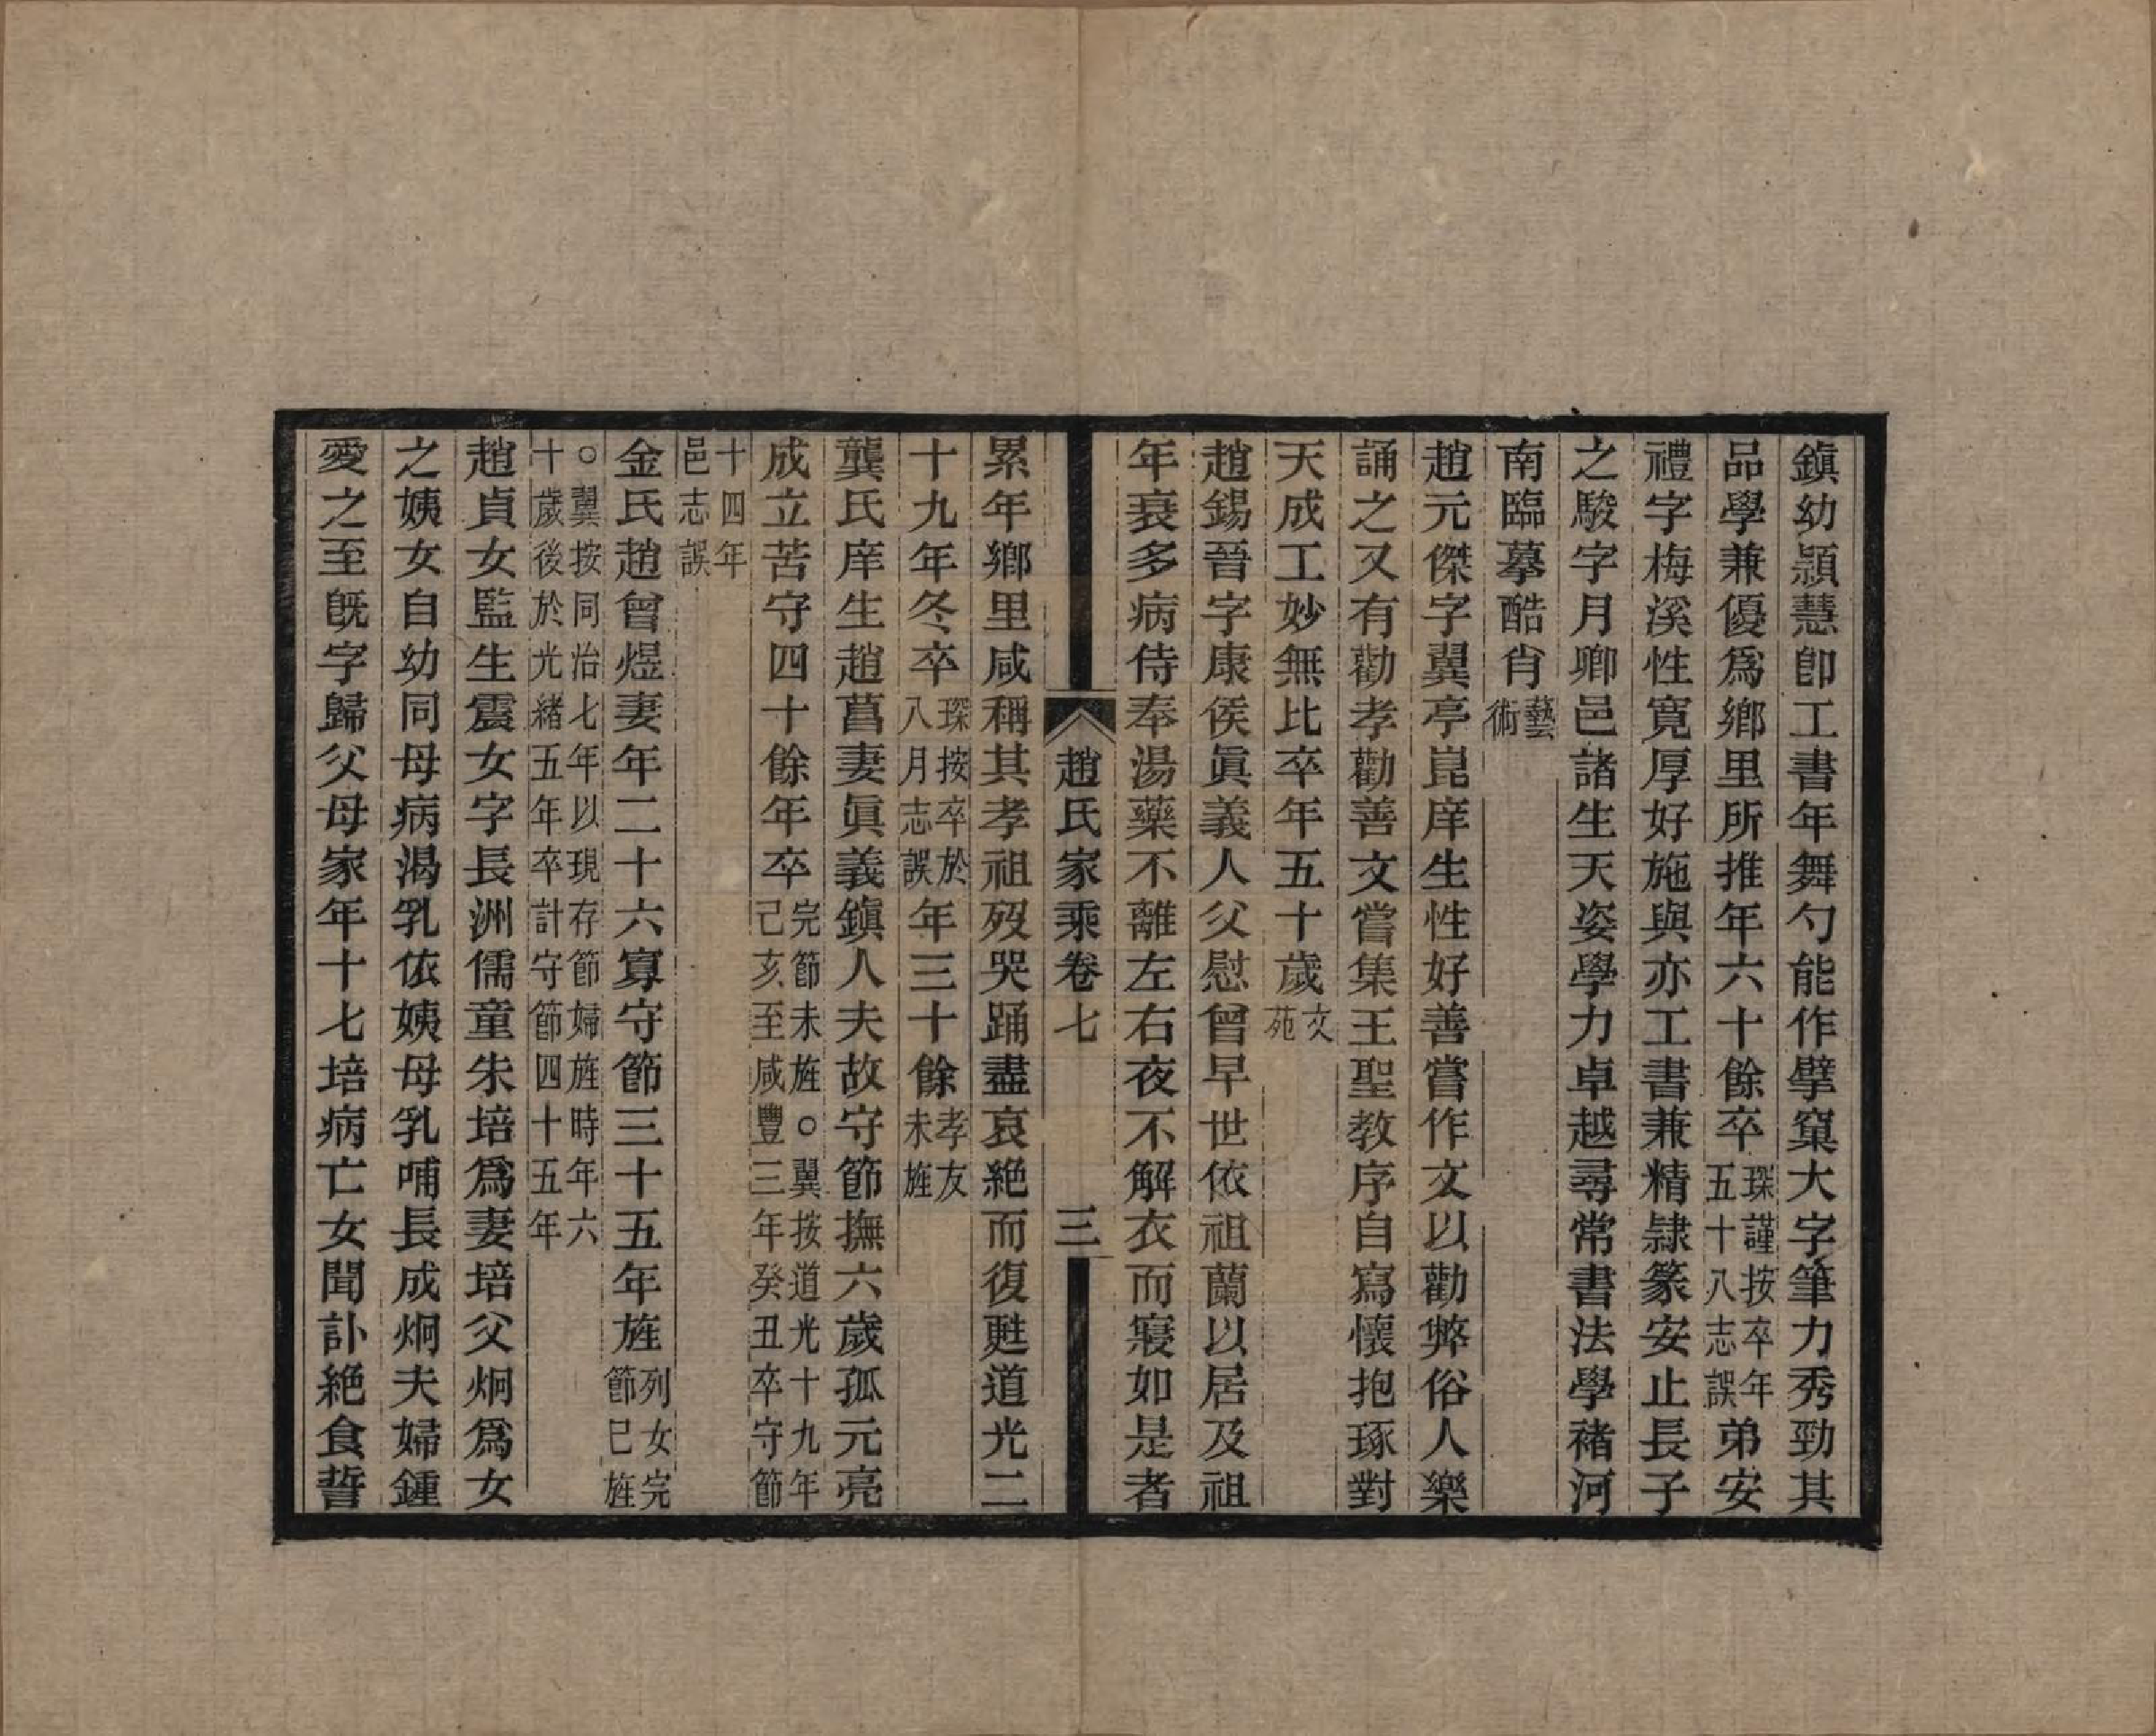 鎭幼顯慧卽工書年舞勺能作擘窠大字筆力秀勁其
品學兼優爲鄉里所推年六十餘卒琛謹按卒年五十八志誤弟安
禮字梅溪性寬厚好施與亦工書兼精隸篆安止長子
之駿字月卿邑諸生天姿學力卓越尋常書法學褚河
南臨摹酷肖藝術
趙元傑字翼亭崑庠生性好善嘗作文以勸弊俗人樂
誦之又有勸孝勸善文嘗集王聖教序自寫懷抱琢對
天成工妙無比卒年五十歲文苑
趙錫晉字康侯眞義人父慰曾早世依祖蘭以居及祖
年衰多病侍奉湯藥不離左右夜不解衣而寢如是者
趙氏家乘卷七 三
累年鄉里咸稱其孝祖歿哭踊盡哀絕而復甦道光二
十九年冬卒琛按卒於八月志誤年三十餘孝友未旌
龔氏庠生趙菖妻眞義鎭人夫故守節撫六歲孤元亮
成立苦守四十餘年卒完節未旌○翼按道光十九年己亥至咸豐三年癸丑卒守節
十四年邑志誤
金氏趙曾煜妻年二十六寡守節三十五年旌列女完節已旌
○翼按同治七年以現存節婦旌時年六十歲後於光緒五年卒計守節四十五年
趙貞女監生震女字長洲儒童朱培爲妻培父炯爲女
之姨女自幼同母病渴乳依姨母乳哺長成炯夫婦鍾
愛之至旣字歸父母家年十七培病亡女聞訃絕食誓